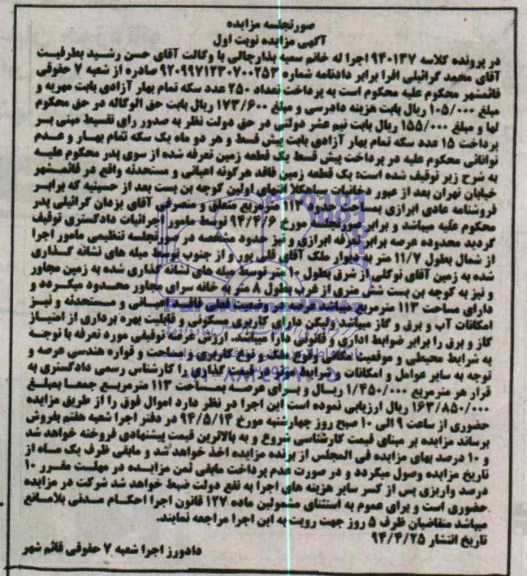 صورتجلسه مزایده
آگهی مزایده نوبت اول
در پرونده کلاسه ۹۴۰۱۳۷ اجرا له خانم سمیه پذارچالی با وکالت آقای حسن رشید بطرفیت
آقای محمد گرائیلی افرا برابر دادنامه شماره ۹۲۰۹۹۷۱۲۳۰۷۰۰۲۵۳ صادره از شعبه ۷ حقوقی
قائمشهر محکوم علیه محکوم است به پرداخت تعداد ۲۵۰ عدد سکه تمام بهار آزادی بابت مهریه و
مبلغ ۱۰۵/۰۰۰ ریال بابت هزینه دادرسی و مبلغ ۱۷۳/۶۰۰ ریال بابت حق الوکاله در حق محکوم
لها و مبلغ ۱۵۵/۰۰۰ ریال بابت نیم عشر دولتی در حق دولت نظر به صدور رای تقسیط مبنی بر
پرداخت ۱۵ عدد سکه تمام بهار آزادی بابت پیش قسط و هر دو ماه یک سکه تمام بهار و عدم
توانائی محکوم علیه در پرداخت پیش قسط یک قطعه زمین تعرفه شده از سوی پدر محکوم علیه
به شرح زیر توقیف شده است: یک قطعه زمین فاقد هرگونه اعیانی و مستحدثه واقع در قائمشهر
خیابان تهران بعد از عبور دخانیات سیاهکلا انتهای اولین کوچه بن بست بعد از حسینیه که برابر
فروشنامه عادی ابرازی بمساحت ۱۱۳ متر مربع متعلق و متصرفی آقای یزدان گرائیلی پدر
محکوم علیه میباشد و برابر صورتجلسه مورخ ۹۴/۴/۶ توسط مامور اجرائیات دادگستری توقیف
گردید محدوده عرصه برابر تعرفه ابرازی و نیز حدود مشخصه در صورتجلسه تنظیمی مامور اجرا
از شمال بطول ۱۱/۷ متر به دیوار ملک آقای پور و از جنوب توسط میله های نشانه گذاری
شده به زمین آقای توکلی از شرق بطول ۱۰ متر توسط میله های نشانه گذاری شده به زمین مجاور
و نیز به کوچه بن بست شش متری از غرب بطول ۸ متر به خانه سرای مجاور محدود میگردد و
دارای مساحت ۱۱۳ مترمربع میباشد عرصه در وضعیت فعلی فاقد اعیانی و مستحدثه و نیز
امکانات آب و برق و گاز میباشد دارای کاربری مسکونی و قابلیت بهره برداری از امتیاز
گاز و برق را برابر ضوابط اداری و قانونی دارا میباشد. ارزش عرصه توقیفی مورد تعرفه با توجه
به شرایط محیطی و موقعیت مکانی و نوع ملک و نوع کاربری و مساحت و قواره هندسی عرصه و
توجه به سایر عوامل و امکانات و شرایط موثر در قیمت گذاری را کارشناس رسمی دادگستری به
قرار هر مترمربع ۱/۴۵۰/۰۰۰ ریال و برای عرصه بمساحت ۱۱۳ مترمربع جمعا بمبلغ
۱۶۳/۸۵۰/۰۰۰ ریال ارزیابی نموده است این اجرا در نظر دارد اموال فوق را از طریق مزایده
حضوری از ساعت ۹ الی ۱۰ صبح روز چهارشنبه مورخ ۹۴/۵/۱۴ در دفتر اجرا شعبه هفتم بفروش
برساند مزایده بر مبنای قیمت کارشناسی شروع و به بالاترین قیمت پیشنهادی فروخته خواهد شد
و ۱۰ درصد بهای مزایده فی المجلس از برنده مزایده اخذ خواهد شد و مابقی ظرف یک ماه از
تاریخ مزایده وصول میگردد و در صورت عدم پرداخت مابقی ثمن مزایده در مهلت مقرر ۱۰
درصد واریزی پس از کسر سایر هزینه های اجرا به نفع دولت ضبط خواهد شد شرکت در مزایده
حضوری است و برای عموم به استثنای مشمولین ماده ۱۲۷ قانون اجرا احکام مدنی بلامانع
میباشد متقاضیان ظرف ۵ روز جهت رویت به این اجرا مراجعه نمایند.
تاریخ انتشار ۹۴/۴/۲۵
دادورز اجرا شعبه ۷ حقوقی قائم شهر